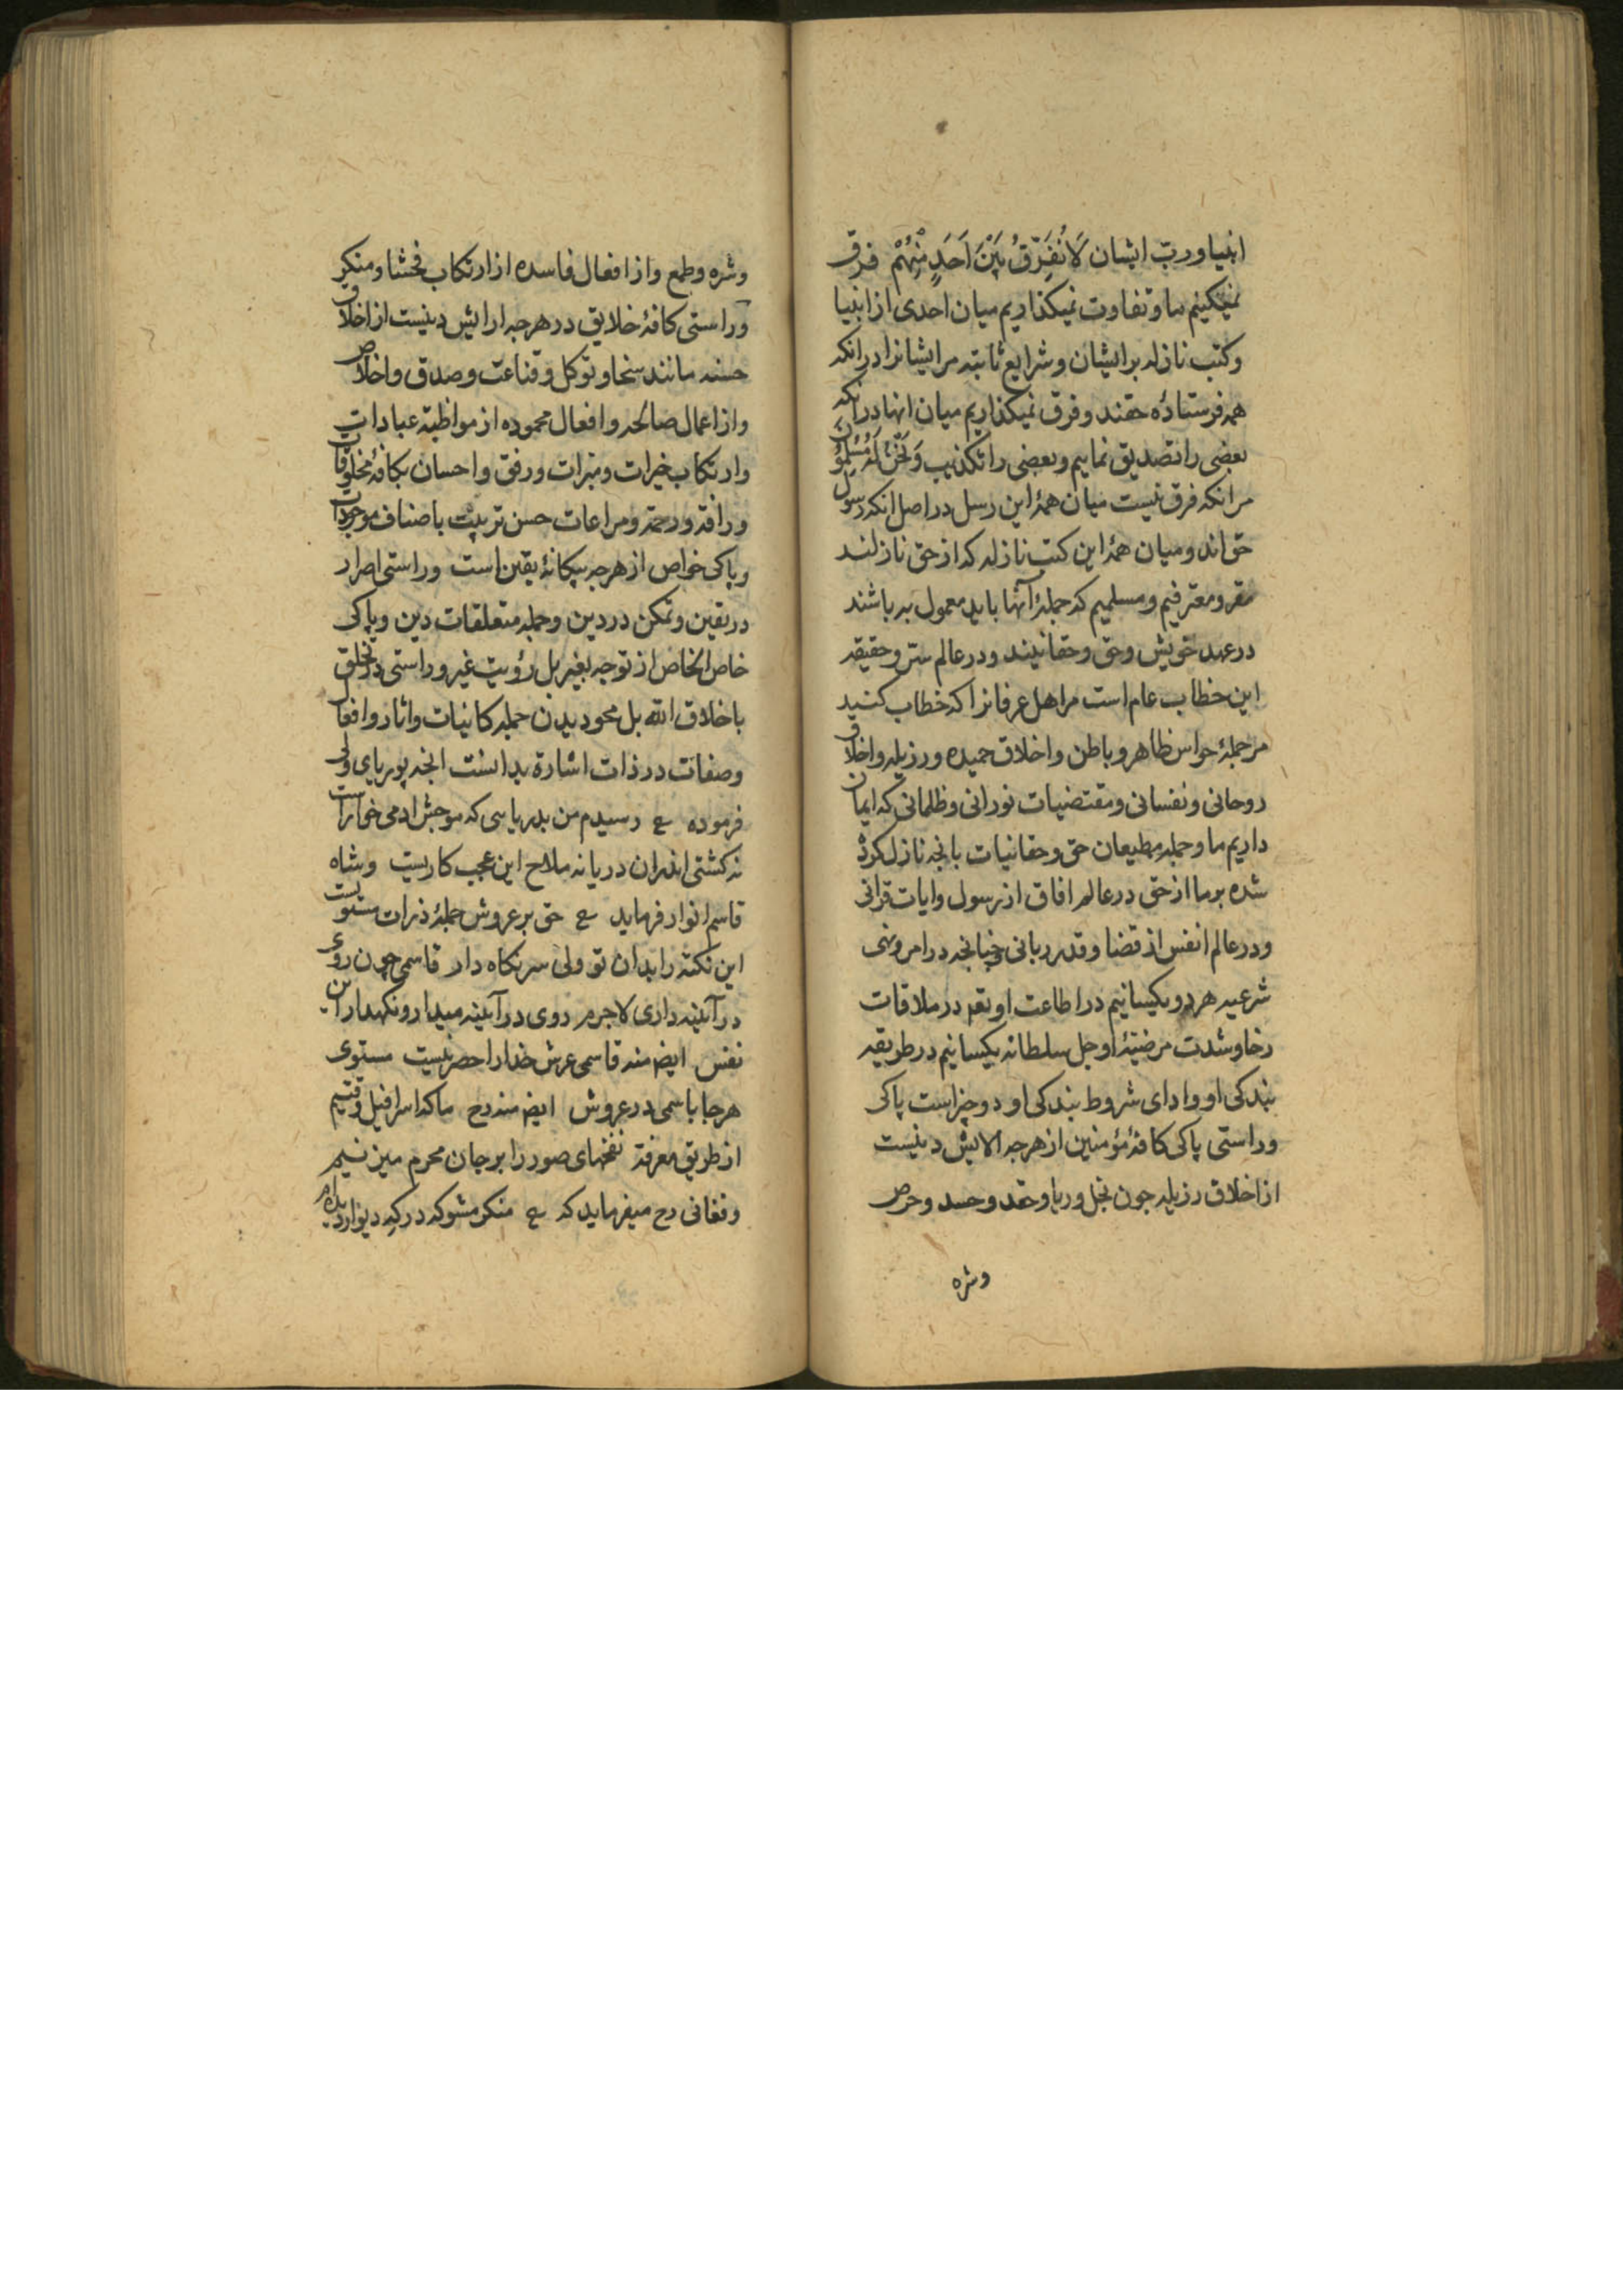 انبیا و ربّ ایشان لَا نُفَرِّقُ بَيْنَ اَحَدٍ مِنْهُمْ فرق
نمیکنیم ما و تفاوت نمیکذاریم میان احدی از انبیا
و کتب نازله برایشان و شرایع ثابته مرایشانرا درانکه
همه فرستادهٔ حقند و فرق نمیکذاریم میان انها درانکه
بعضی را تصدیق نماییم و بعضی را تکذیب وَنَحْنُ لَهُ مُسْلِمُونَ
مرانکه فرق نیست میان همهٔ این رسل در اصل انکه رسول
حق اند و میان همهٔ این کتب نازله که از حق نازلند
مقر و معترفیم و مسلمیم که جملهٔ آنها باید معمول به باشند
در عهد خویش و حق و حقانیند و در عالم ستر و حقیقه
این خطاب عام است مر اهل عرفانرا که خطاب کنید
مر جملهٔ حواس ظاهر و باطن و اخلاق حمیده و رزیله و اخلاق
روحانی و نفسانی و مقتضیات نورانی و ظلمانی که ایمان
داریم ما و جملهٔ مطیعان حق و حقانیات بانجه نازل کرده
شده بر ما از حق در عالم افاق از رسول و ایات قرانی
و در عالم انفس از قضا و قدر ربانی چنانجه در امر و نهی
شرعیه هر دو یکسانیم در اطاعت او تعہ در ملاقات
رخا و شدت مرضیّهٔ او جل سلطانه یکسانیم در طریقه
بندکی او و ادای شروط بندکی او دو چیز است پاکی
و راستی پاکی کافهٔ مؤمنین از هرجه الایش دینیست
از اخلاق رزیله جون بخل و ریا و حقد و حسد و حرص
وشره
وشره و طمع و از افعال فاسده از ارتکاب فحشا و منکر
و راستی کافهٔ خلایق در هرجه ارایش دینیست از اخلاق
حسنه مانند سخا و توکل و قناعت و صدق و اخلاص
و از اعمال صالحه و افعال محموده از مواظبة عبادات
و ارتکاب خیرات و مبرات و رفق و احسان بکافهٔ مخلوقات
و رافة و رحمة و مراعات حسن تربیت باصناف موجودات
و پاکی خواص از هرجه بیکانهٔ یقین است و راستی اصرار
در یقین و تمکن در دین و جملهٔ متعلقات دین و پاکی
خاص الخاص از توجه بغیر بل رؤیت غیر و راستی در تخلق
باخلاق الله بل محو دیدن جملهٔ کانیات و اثار و افعال
و صفات در ذات اشارة بدانست انجه پوریای ولی
فرموده ع رسیدم من بدریاسی که موجش ادمی خوارست
نه کشتی اندران دریا نه ملاح این عجب کاریست و شاه
قاسم انوار فرماید ع حق بر عروش جملهٔ ذرات مستویست
این نکته را بدان تو ولی سر نکاه دار قاسمی چون روی
در آئینه داری لاجرم روی در آئینه میدار و نکهدار این
نفس ایضٖ منه قاسمی عرش خدارا حصر نیست مستوی
هرجا باسمی در عروش ایضٖ منه رح ما که اسرافیل وقتیم
از طریق معرفة نفخهای صور را بر جان محرم میزنیم
و فغانی رح میفرماید که ع منکر مشو که درکه دیوار